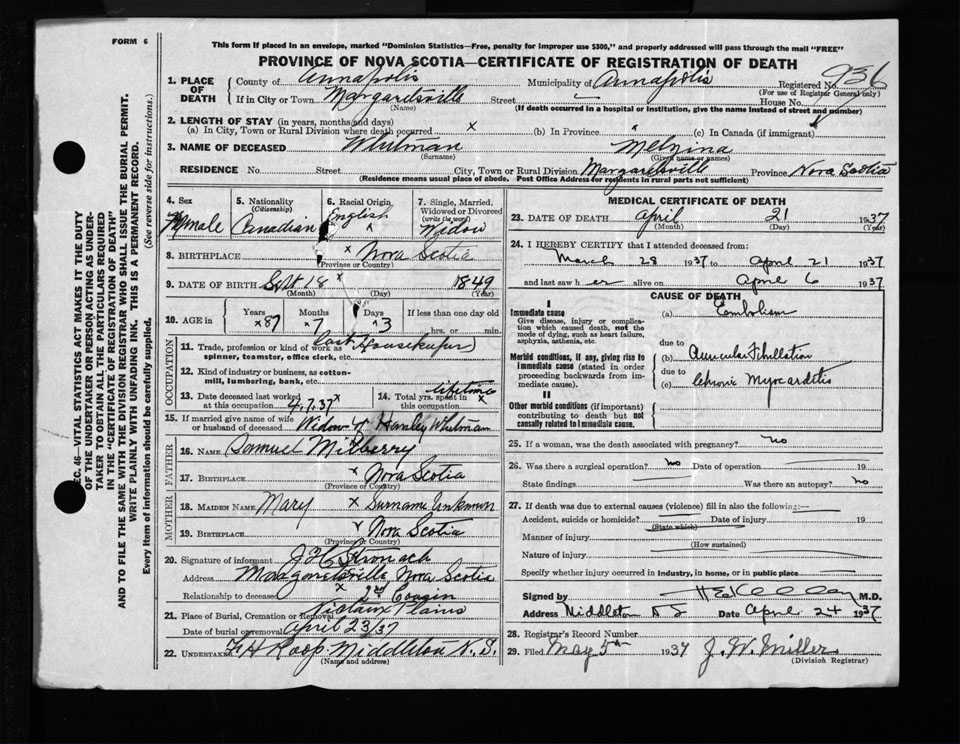 FORM 6
This form if placed in an envelope, marked "Dominion Statistics—Free, penalty for improper use $300," and properly addressed will pass through the mail "FREE"
PROVINCE OF NOVA SCOTIA—CERTIFICATE OF REGISTRATION OF DEATH
SEC. 46—VITAL STATISTICS ACT MAKES IT THE DUTY
OF THE UNDERTAKER OR PERSON ACTING AS UNDER-
TAKER TO OBTAIN ALL THE PARTICULARS REQUIRED
IN THE "CERTIFICATE OF REGISTRATION OF DEATH"
AND TO FILE THE SAME WITH THE DIVISION REGISTRAR WHO SHALL ISSUE THE BURIAL PERMIT.
WRITE PLAINLY WITH UNFADING INK. THIS IS A PERMANENT RECORD.
Every item of information should be carefully supplied. (See reverse side for instructions.)
1. PLACE OF DEATH County of Annapolis Municipality of Annapolis Registered No. 936
(For use of Registrar General only)
If in City or Town Margaretsville Street House No.
(Name) (If death occurred in a hospital or institution, give the name instead of street and number)
2. LENGTH OF STAY (in years, months and days)
(a) In City, Town or Rural Division where death occurred x (b) In Province x (c) In Canada (if immigrant)
3. NAME OF DECEASED Whitman Melzina
(Surname) (Given name or names)
RESIDENCE No. Street City, Town or Rural Division Margaretsville Province Nova Scotia
(Residence means usual place of abode. Post Office Address for residents in rural parts not sufficient)
4. Sex 5. Nationality (Citizenship) 6. Racial Origin 7. Single, Married, Widowed or Divorced (write the word)
Female Canadian English Widow
8. BIRTHPLACE x Nova Scotia
(Province or Country)
9. DATE OF BIRTH Sept 18 x 1849
(Month) (Day) (Year)
10. AGE in Years Months Days If less than one day old
x87 7 3 hrs. or min.
OCCUPATION
11. Trade, profession or kind of work as (Housekeeper)
spinner, teamster, office clerk, etc.
12. Kind of industry or business, as cotton-
mill, lumbering, bank, etc.
13. Date deceased last worked at this occupation 4.7.37 x 14. Total yrs. spent in this occupation lifetime x
15. If married give name of wife or husband of deceased Widow of Harley Whitman
FATHER
16. NAME Samuel Milberry
17. BIRTHPLACE x Nova Scotia
(Province or Country)
MOTHER
18. MAIDEN NAME Mary x Surname Unknown
19. BIRTHPLACE Nova Scotia
(Province or Country)
20. Signature of informant Stronach
Address Margaretsville Nova Scotia
Relationship to deceased x 2nd Cousin
21. Place of Burial, Cremation or Removal Nictaux Plains
Date of burial or removal April 23/37
22. UNDERTAKER F H Roop Middleton N.S.
(Name and address)
MEDICAL CERTIFICATE OF DEATH
23. DATE OF DEATH April 21 1937
(Month) (Day) (Year)
24. I HEREBY CERTIFY that I attended deceased from:
March 28 1937 to April 21 1937
and last saw her alive on April 6 1937
CAUSE OF DEATH
I
Immediate cause (a) Embolism
Give disease, injury or complication which caused death, not the mode of dying, such as heart failure, asphyxia, asthenia, etc.
due to
Morbid conditions, if any, giving rise to immediate cause (stated in order proceeding backwards from immediate cause). (b) Auricular Fibrillation
due to
(c) Chronic Myocarditis
II
Other morbid conditions (if important) contributing to death but not causally related to immediate cause.
25. If a woman, was the death associated with pregnancy? no
26. Was there a surgical operation? no Date of operation 19
State findings Was there an autopsy? no
27. If death was due to external causes (violence) fill in also the following:
Accident, suicide or homicide? Date of injury 19
(State which)
Manner of injury
(How sustained)
Nature of injury
Specify whether injury occurred in industry, in home, or in public place
Signed by M.D.
Address Middleton N S Date April 24 1937
28. Registrar's Record Number
29. Filed May 5th 1937 J. W. Miller
(Division Registrar)